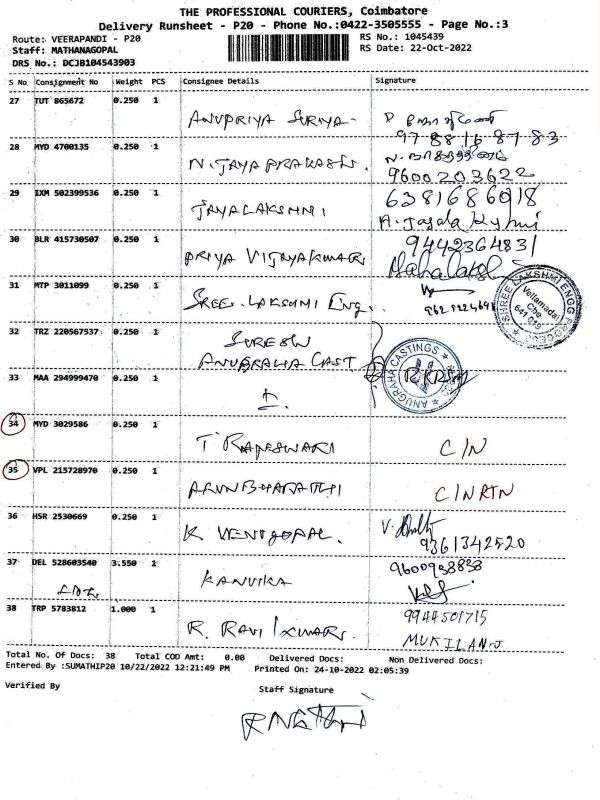 THE PROFESSIONAL COURIERS, Coimbatore
Delivery Runsheet - P20 - Phone No.:0422-3505555 - Page No.:3
Route: VEERAPANDI - P20 RS No.: 1045439
Staff: MATHANAGOPAL RS Date: 22-Oct-2022
DRS No.: DCJB104543903
S No Consignment No Weight PCS Consignee Details Signature
27 TUT 865672 0.250 1
ANUPRIYA SURIYA
97 88 16 87 83
28 MYD 4700135 0.250 1
N. JAYAPRAKASH.
9600203622
29 IXM 502399536 0.250 1 6381686018
JAYALAKSHMI
30 BLR 415730507 0.250 1 9442364831
PRIYA VIJAYAKUMAR
31 MTP 3011099 0.250 1
SREE. LAKSHMI Eng. SHREE LAKSHMI ENGG PROCESS
Vellamadai
Cbe
32 TRZ 220567537 0.250 1 SURESH
ANUGRAHA CAST ANUGRAHA CASTINGS
33 MAA 294999470 0.250 1
34 MYD 3029586 0.250 1
T RAJESWARI C/N
35 VPL 215728970 0.250 1
ARUN BHARATHI C/NRTN
36 HSR 2530669 0.250 1
K VENUGOPAL. 9361342520
37 DEL 528603540 3.550 1 9600938838
KANVIKA
38 TRP 5783812 1.000 1 9944501715
R. RAVI KUMAR. MUKILAN.J
Total No. Of Docs: 38 Total COD Amt: 0.00 Delivered Docs: Non Delivered Docs:
Entered By :SUMATHIP20 10/22/2022 12:21:49 PM Printed On: 24-10-2022 02:05:39
Verified By Staff Signature